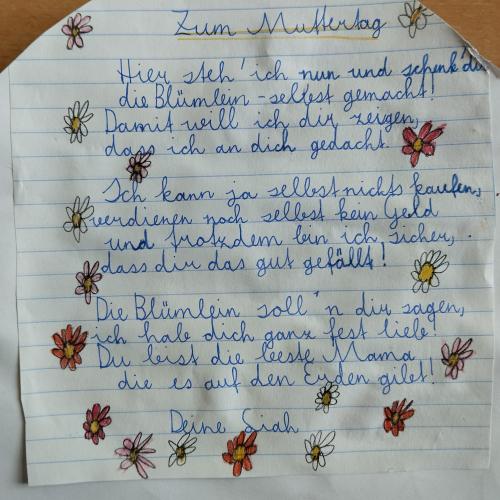 Zum Muttertag
Hier steh' ich nun und schenk' dir
die Blümlein - selbst gemacht!
Damit will ich dir zeigen,
dass ich an dich gedacht.
Ich kann ja selbst nichts kaufen,
verdienen noch selbst kein Geld
und trotzdem bin ich sicher,
dass dir das gut gefällt!
Die Blümlein soll'n dir sagen,
ich hab dich ganz fest lieb!
Du bist die beste Mama
die es auf den Erden gibt!
Deine Siah